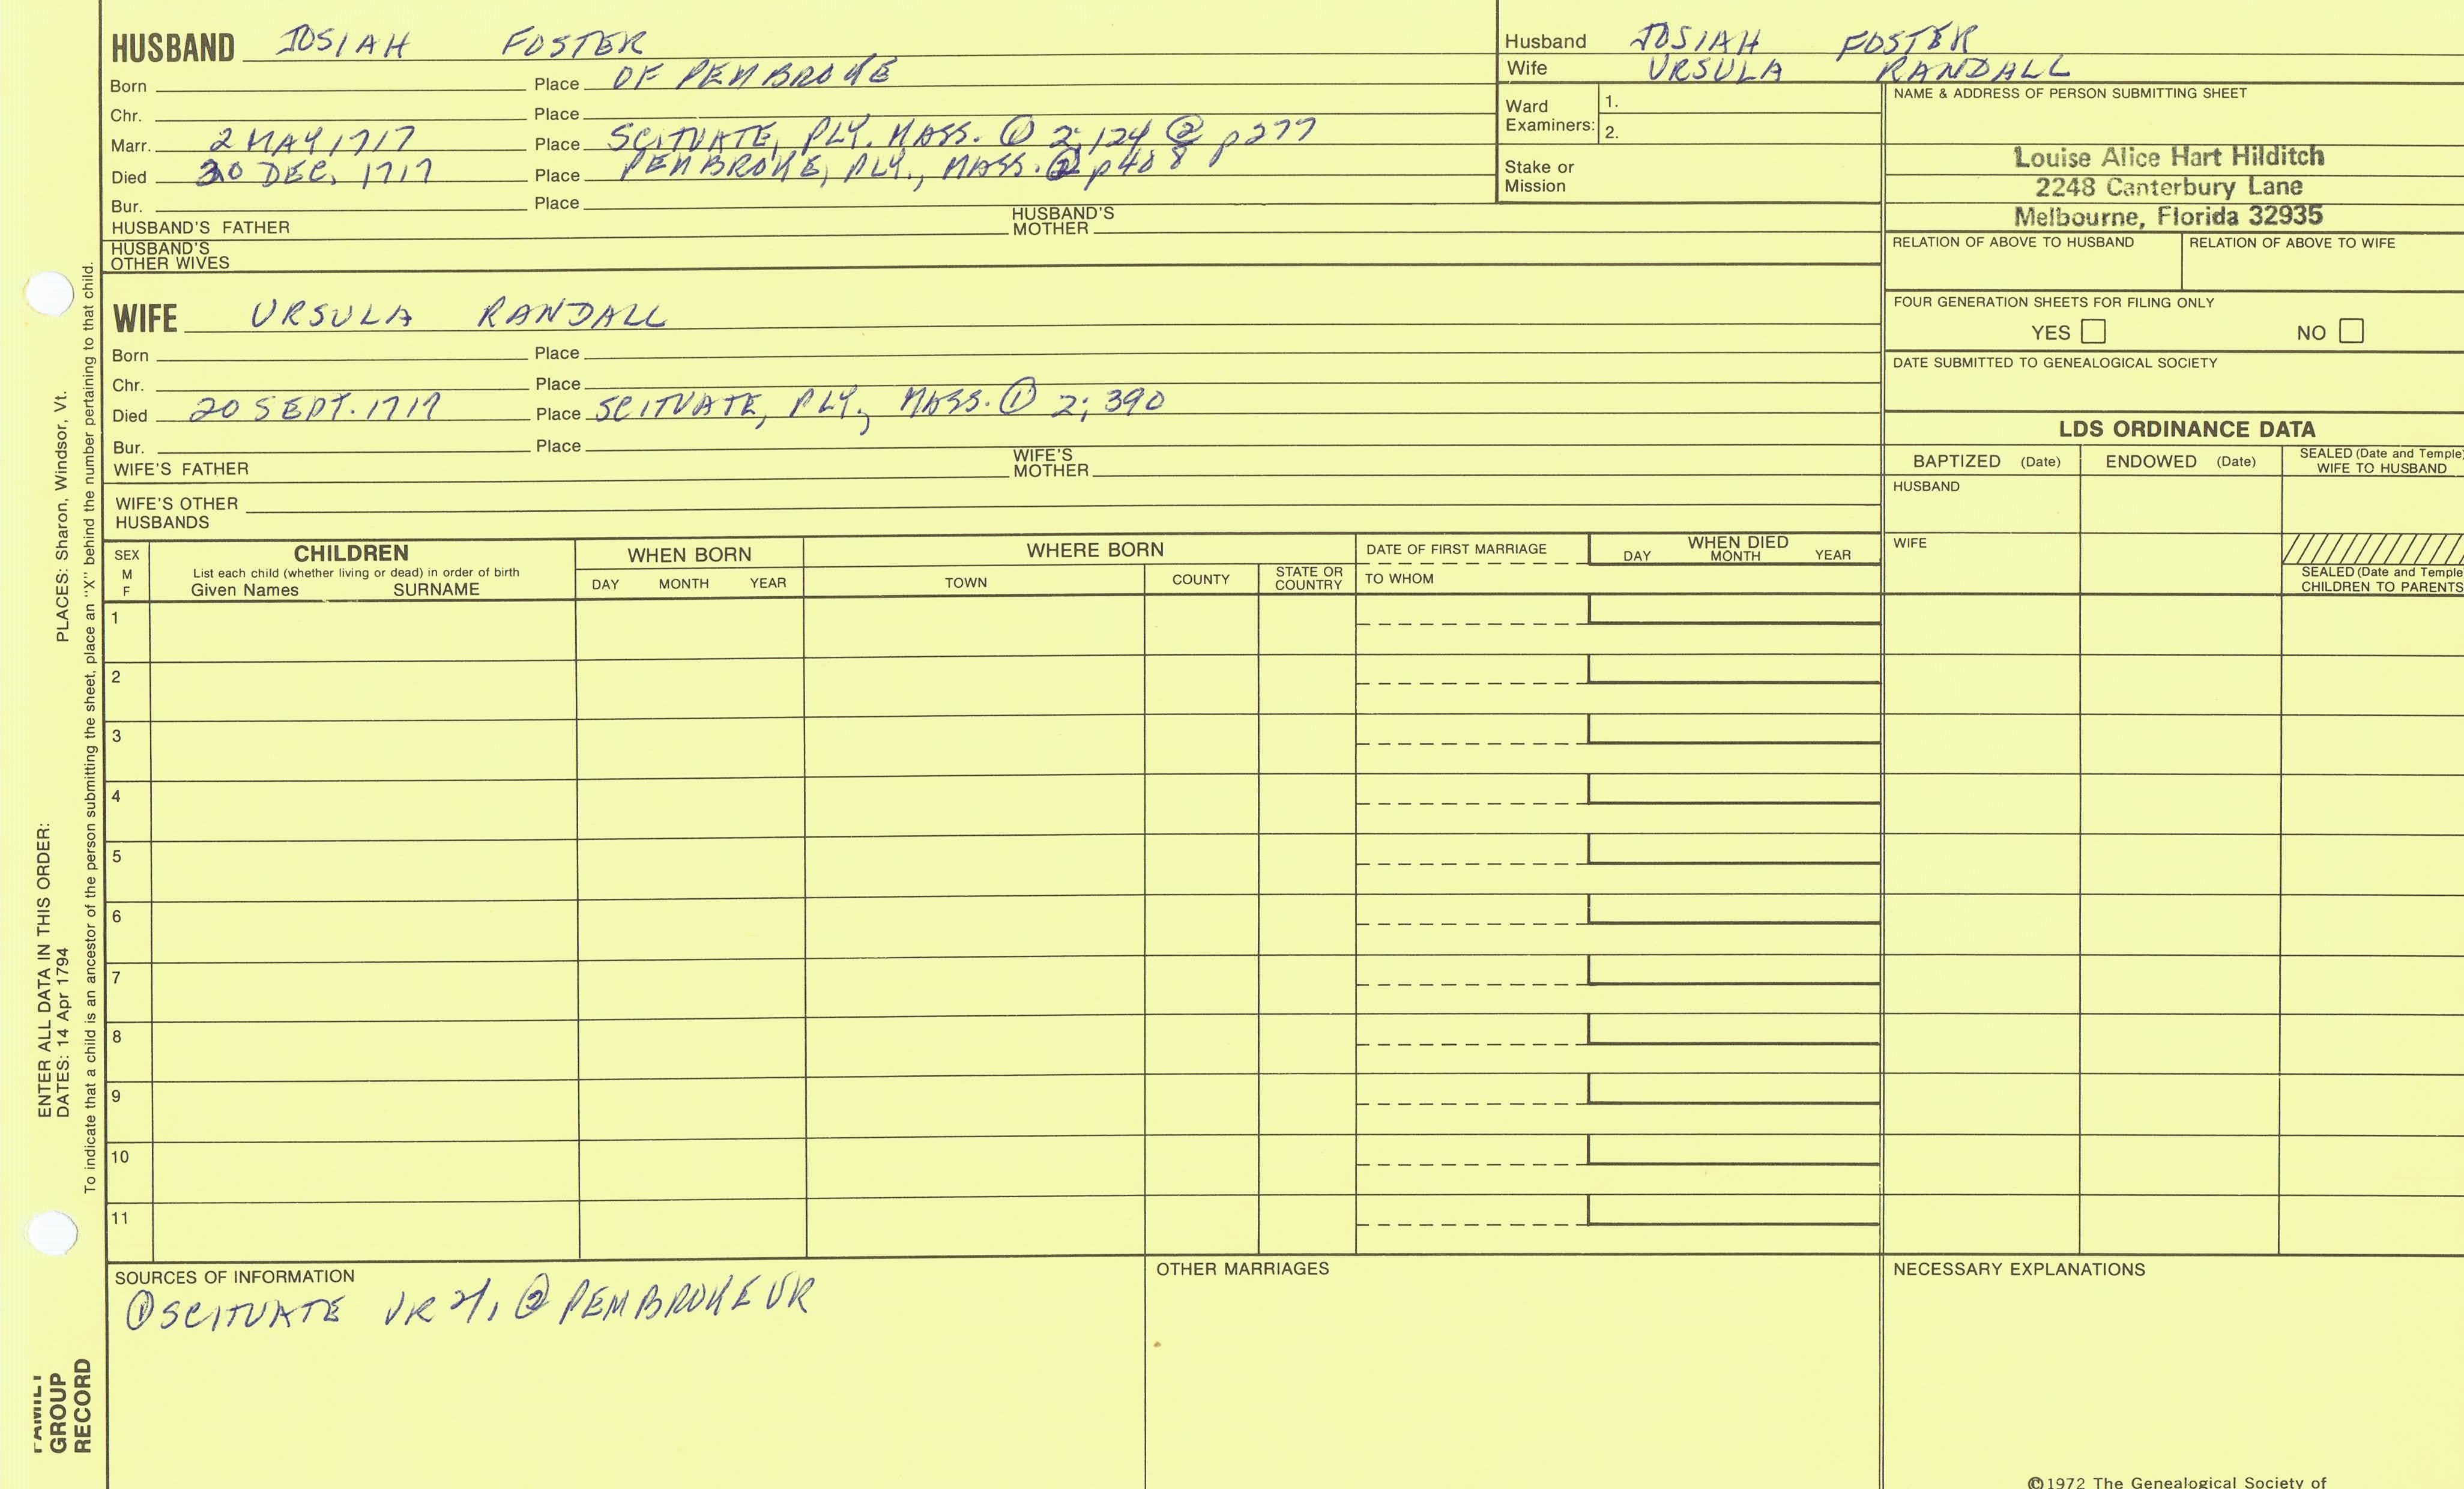 HUSBAND JOSIAH FOSTER
Born Place OF PEMBROKE
Chr. Place
Marr. 2 MAY 1717 Place SCITUATE, PLY. MASS. ① 2;124 ② p277
Died 30 DEC. 1717 Place PEMBROKE, PLY., MASS. ② p408
Bur. Place
HUSBAND'S FATHER HUSBAND'S MOTHER
HUSBAND'S OTHER WIVES
Husband JOSIAH FOSTER
Wife URSULA RANDALL
Ward Examiners: 1.
2.
Stake or Mission
NAME & ADDRESS OF PERSON SUBMITTING SHEET
Louise Alice Hart Hilditch
2248 Canterbury Lane
Melbourne, Florida 32935
RELATION OF ABOVE TO HUSBAND RELATION OF ABOVE TO WIFE
FOUR GENERATION SHEETS FOR FILING ONLY
YES NO
DATE SUBMITTED TO GENEALOGICAL SOCIETY
WIFE URSULA RANDALL
Born Place
Chr. Place
Died 20 SEPT. 1717 Place SCITUATE, PLY., MASS. ① 2; 390
Bur. Place
WIFE'S FATHER WIFE'S MOTHER
WIFE'S OTHER HUSBANDS
LDS ORDINANCE DATA
BAPTIZED (Date) ENDOWED (Date) SEALED (Date and Temple) WIFE TO HUSBAND
HUSBAND
WIFE
SEALED (Date and Temple
CHILDREN TO PARENTS
SEX M F
CHILDREN
List each child (whether living or dead) in order of birth
Given Names SURNAME
WHEN BORN
DAY MONTH YEAR
WHERE BORN
TOWN COUNTY STATE OR COUNTRY
DATE OF FIRST MARRIAGE
TO WHOM
WHEN DIED
DAY MONTH YEAR
1
2
3
4
5
6
7
8
9
10
11
SOURCES OF INFORMATION
① SCITUATE VR 2/, ② PEMBROKE VR
OTHER MARRIAGES
NECESSARY EXPLANATIONS
©1972 The Genealogical Society of
ENTER ALL DATA IN THIS ORDER:
DATES: 14 Apr 1794 PLACES: Sharon, Windsor, Vt.
To indicate that a child is an ancestor of the person submitting the sheet, place an "X" behind the number pertaining to that child.
FAMILY
GROUP
RECORD